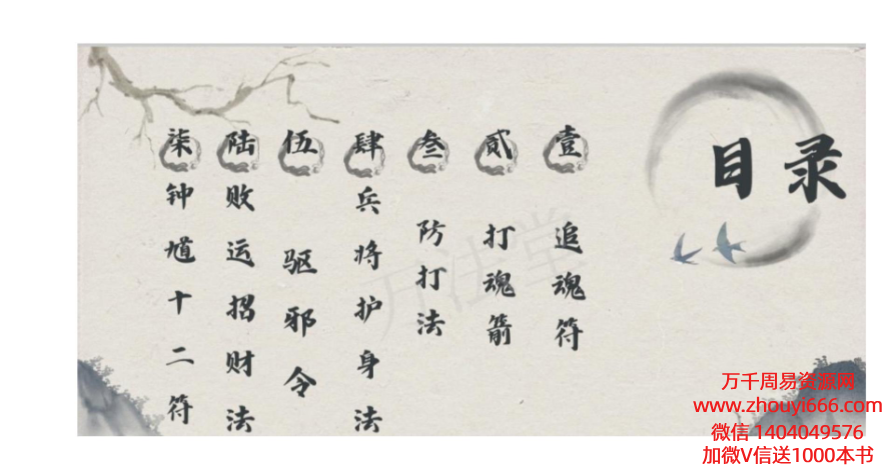 目录
壹 追魂符
贰 打魂箭
叁 防打法
肆 兵将护身法
伍 驱邪令
陆 败运招财法
柒 钟馗十二符
万法堂
万千周易资源网
www.zhouyi666.com
微信 1404049576
加微V信送1000本书